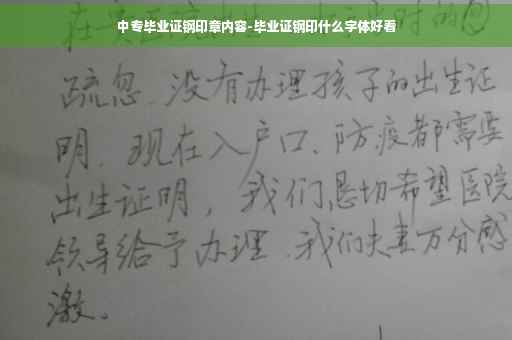 中专毕业证钢印章内容-毕业证钢印什么字体好看
疏忽、没有办理孩子的出生证
明、现在入户口、防疫都需要
出生证明，我们恳切希望医院
领导给予办理、我们夫妻万分感
激。